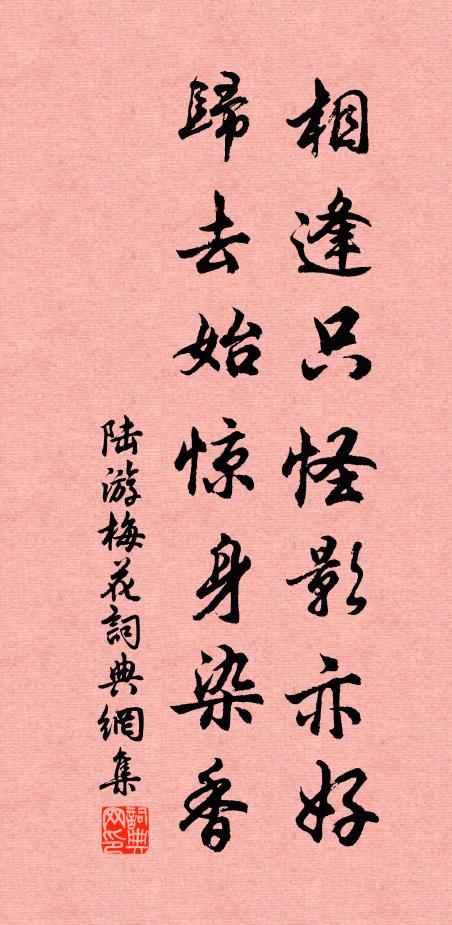 相逢只怪影亦好
歸去始惊身染香
陆游梅花詞典網集
詞典网印